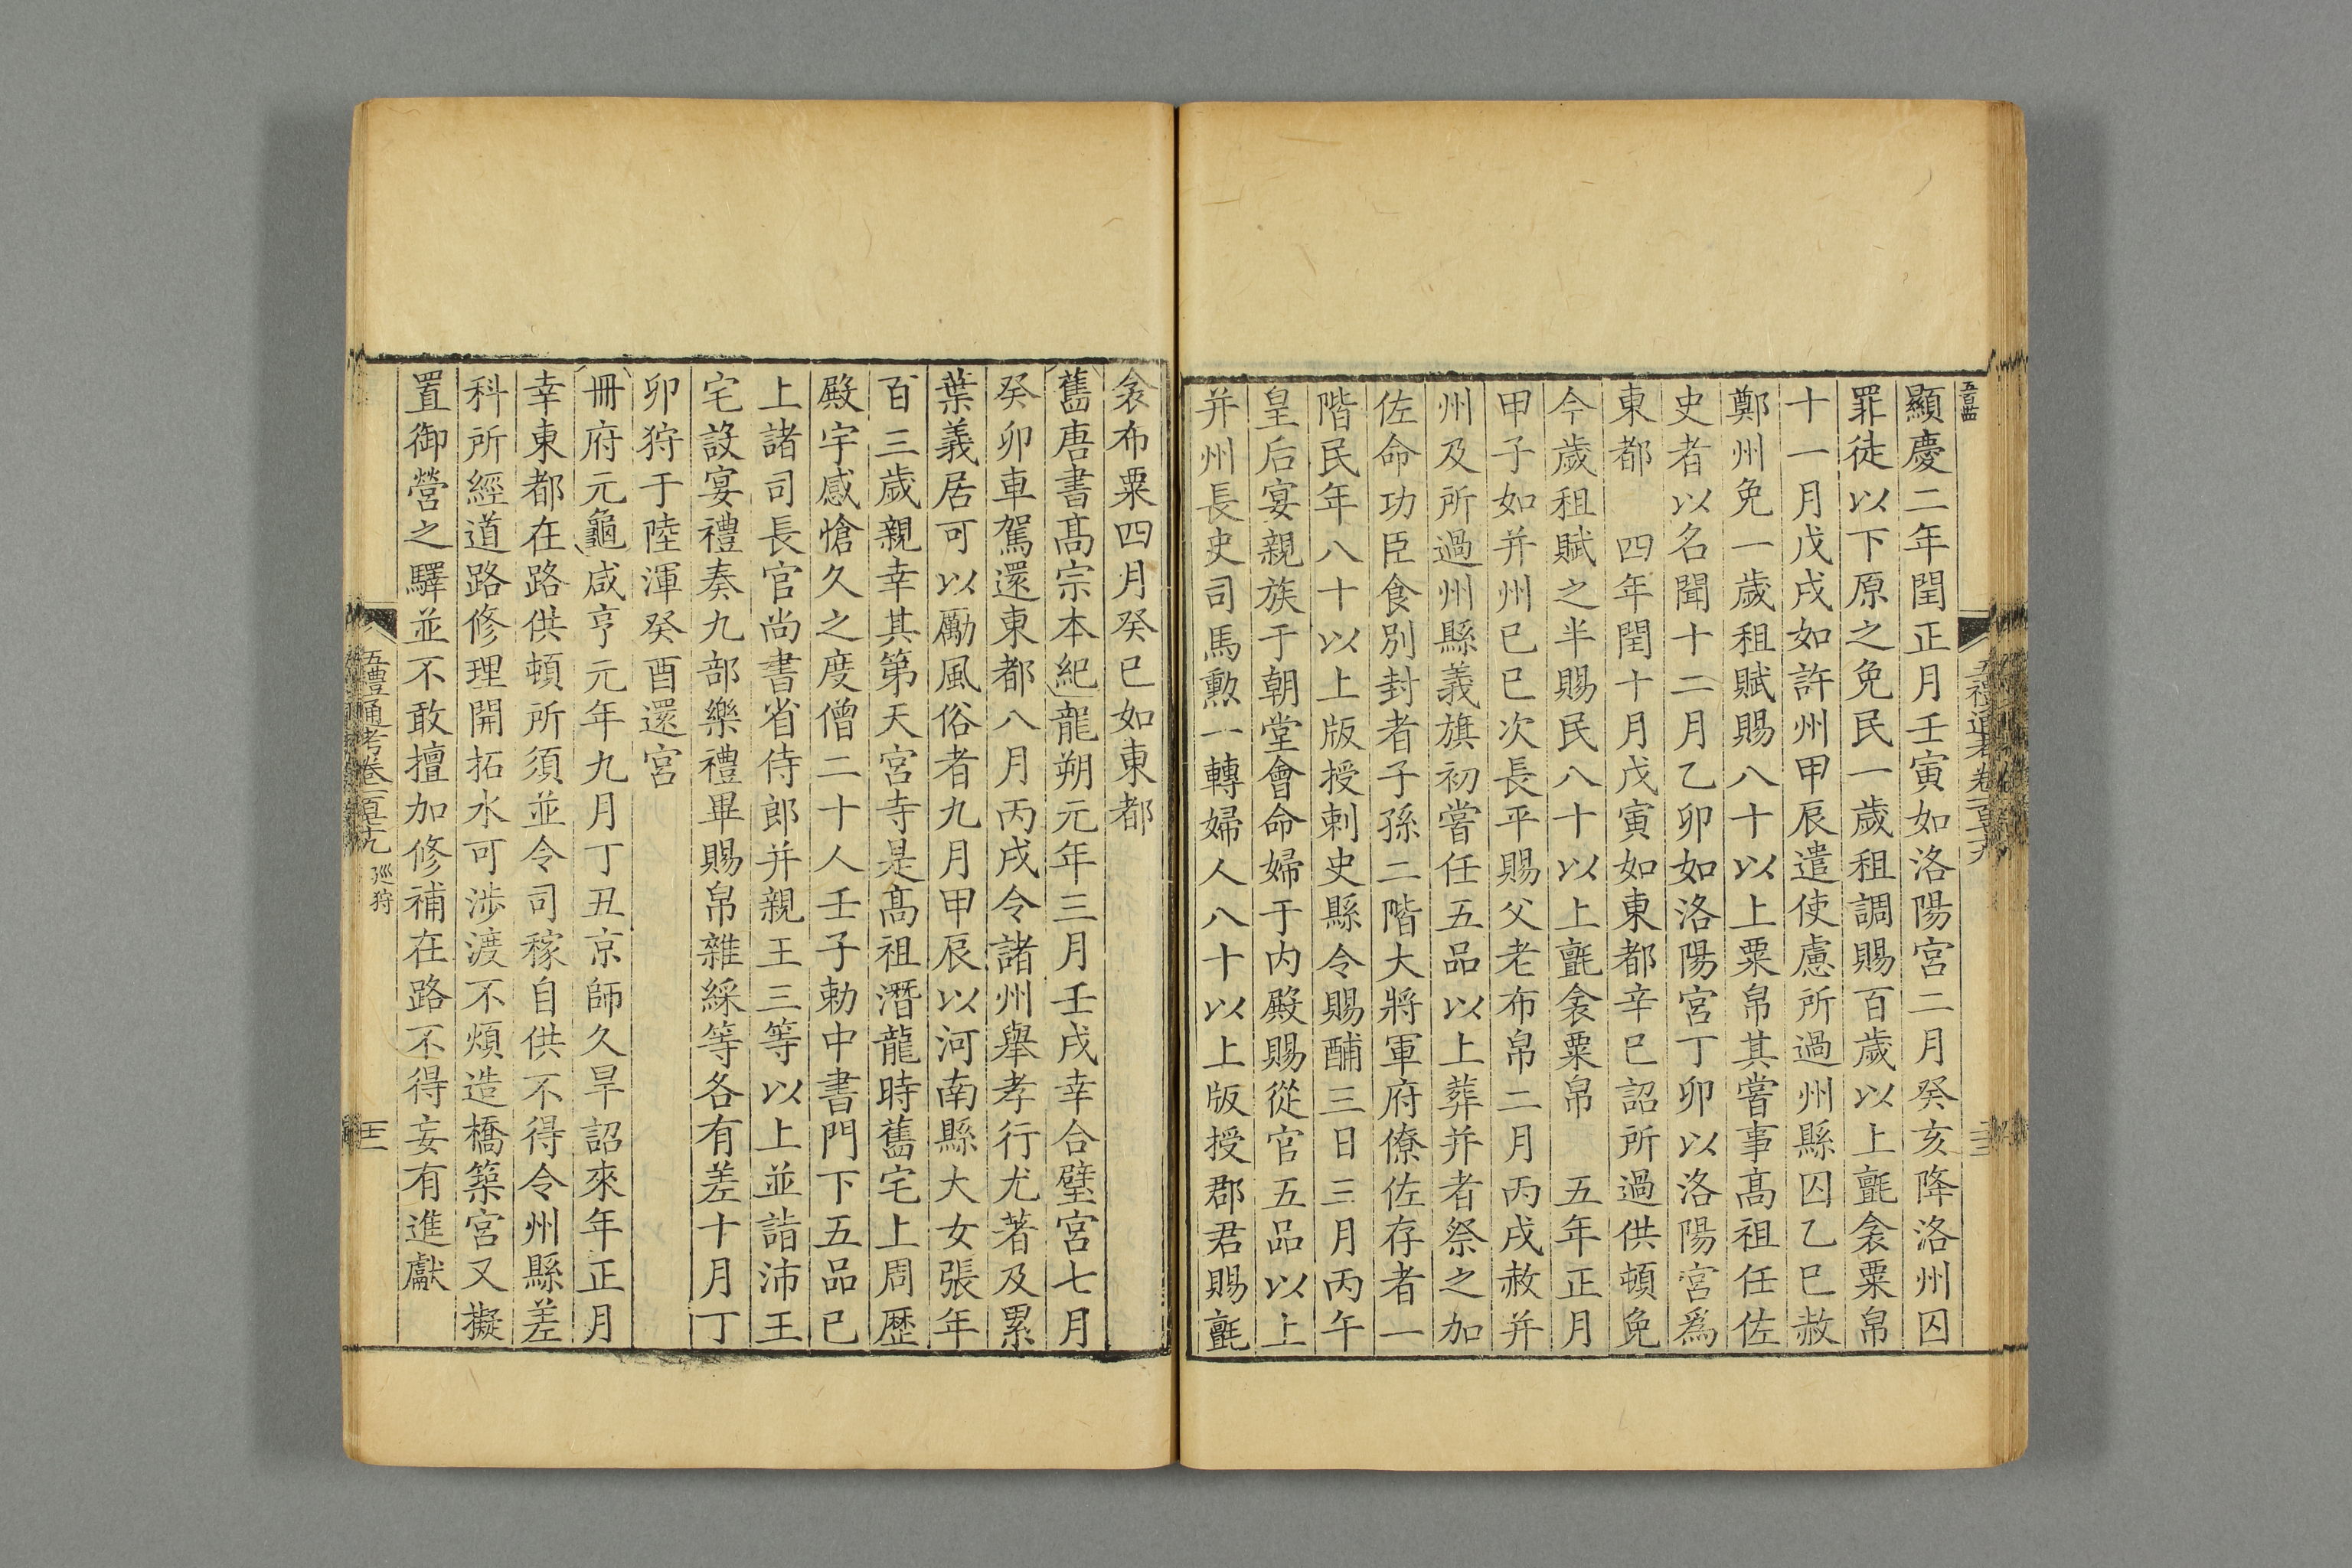 顯慶二年閏正月壬寅如洛陽宮二月癸亥降洛州囚
罪徒以下原之免民一歲租調賜百歲以上氈衾粟帛
十一月戊戌如許州甲辰遣使慮所過州縣囚乙巳赦
鄭州免一歲租賦賜八十以上粟帛其嘗事髙祖任佐
史者以名聞十二月乙卯如洛陽宮丁卯以洛陽宮爲
東都　四年閏十月戊寅如東都辛巳詔所過供頓免
今歲租賦之半賜民八十以上氈衾粟帛　五年正月
甲子如并州己巳次長平賜父老布帛二月丙戌赦并
州及所過州縣義旗初嘗任五品以上葬并者祭之加
佐命功臣食別封者子孫二階大將軍府僚佐存者一
階民年八十以上版授刺史縣令賜酺三日三月丙午
皇后宴親族于朝堂會命婦于内殿賜從官五品以上
并州長史司馬勲一轉婦人八十以上版授郡君賜氈
衾布粟四月癸巳如東都
舊唐書髙宗本紀龍朔元年三月壬戌幸合璧宮七月
癸卯車駕還東都八月丙戌令諸州舉孝行尤著及累
葉義居可以勵風俗者九月甲辰以河南縣大女張年
百三歲親幸其第天宮寺是髙祖潛龍時舊宅上周歷
殿宇感愴久之度僧二十人壬子勅中書門下五品已
上諸司長官尚書省侍郎并親王三等以上並詣沛王
宅設宴禮奏九部樂禮畢賜帛雜綵等各有差十月丁
卯狩于陸渾癸酉還宮
冊府元龜咸亨元年九月丁丑京師久旱詔來年正月
幸東都在路供頓所須並令司稼自供不得令州縣差
科所經道路修理開拓水可涉渡不煩造橋築宮又擬
置御營之驛並不敢擅加修補在路不得妄有進獻
五禮通考卷一百七十九
巡狩